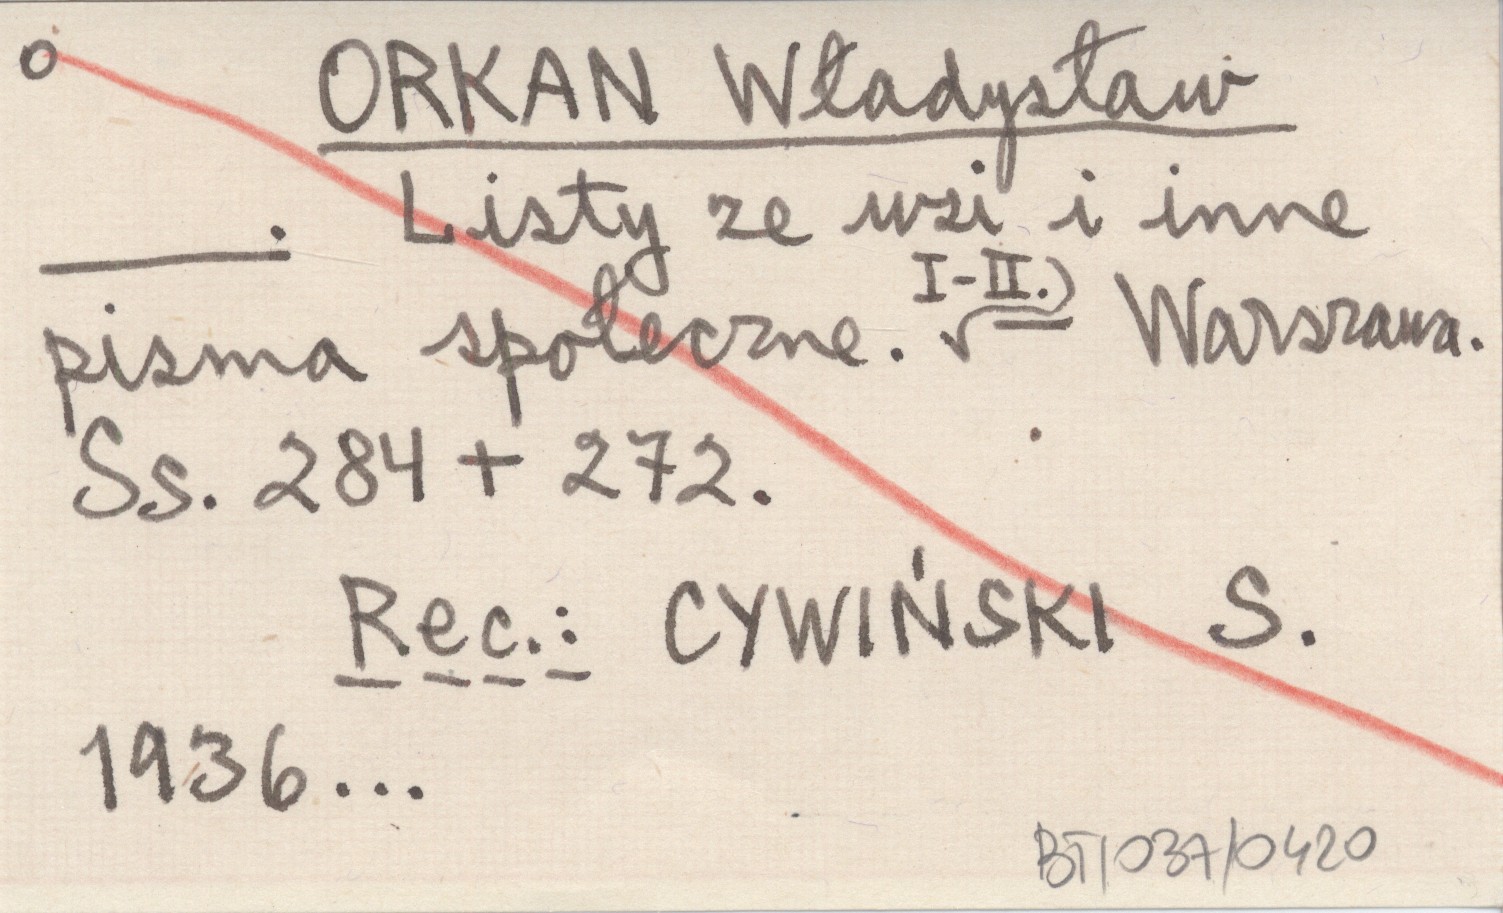 o ORKAN Władysław
____. Listy ze wsi i inne
I-II.)
pisma społeczne. √ Warszawa.
Ss. 284 + 272.
Rec.: CYWIŃSKI S.
1936...
BT/037/0420